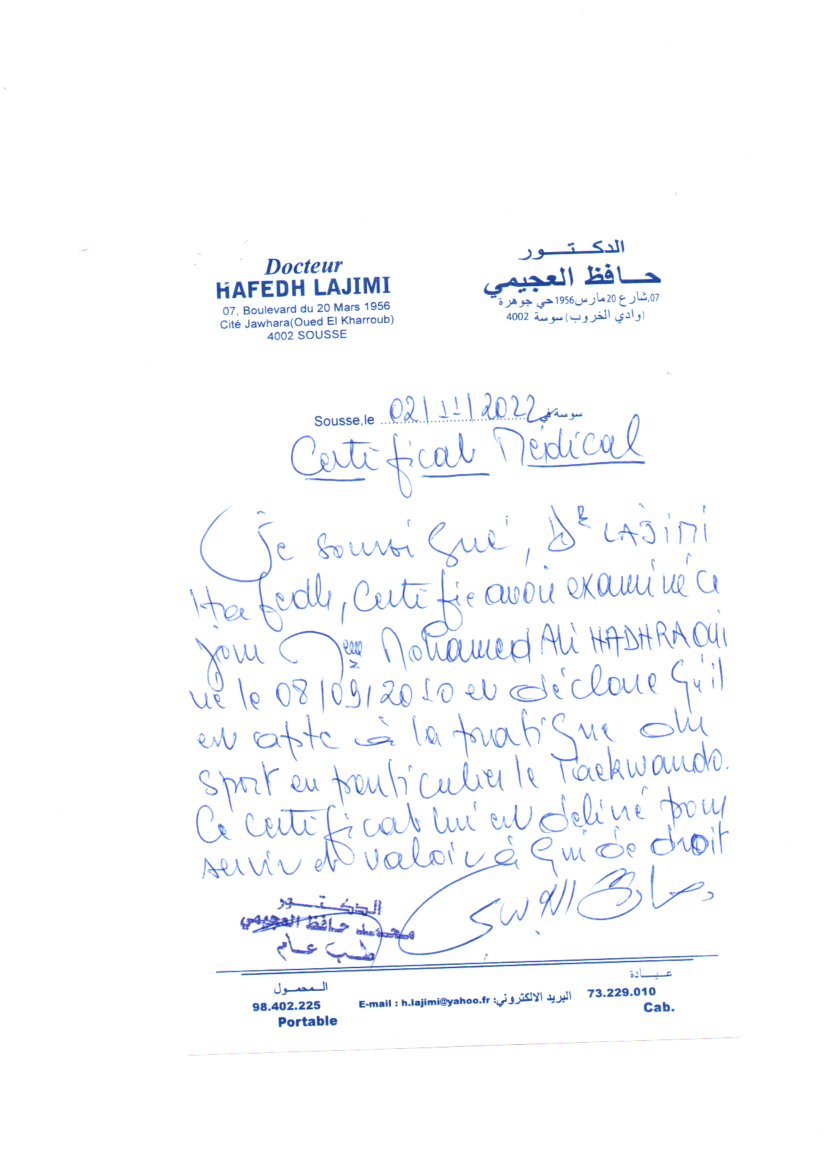 Docteur
HAFEDH LAJIMI
07, Boulevard du 20 Mars 1956
Cité Jawhara(Oued El Kharroub)
4002 SOUSSE
الدكتور
حافظ العجيمي
07,شارع 20 مارس 1956 حي جوهرة
(وادي الخروب) سوسة 4002
Sousse,le 02/11/2022 سوسة في
Certificat Médical
Je soussigné, Dr LAJIMI
Hafedh, certifie avoir examiné ce
jour Mohamed Ali HADHRAOUI
né le 08/09/2010 et déclare qu'il
est apte à la pratique du
sport en particulier le Taekwando.
Ce certificat lui est délivré pour
servir et valoir à qui de droit
الدكتور
محمد حافظ العجيمي
طب عام
المحمول
98.402.225
Portable
E-mail : h.lajimi@yahoo.fr البريد الالكتروني:
عيادة
73.229.010
Cab.